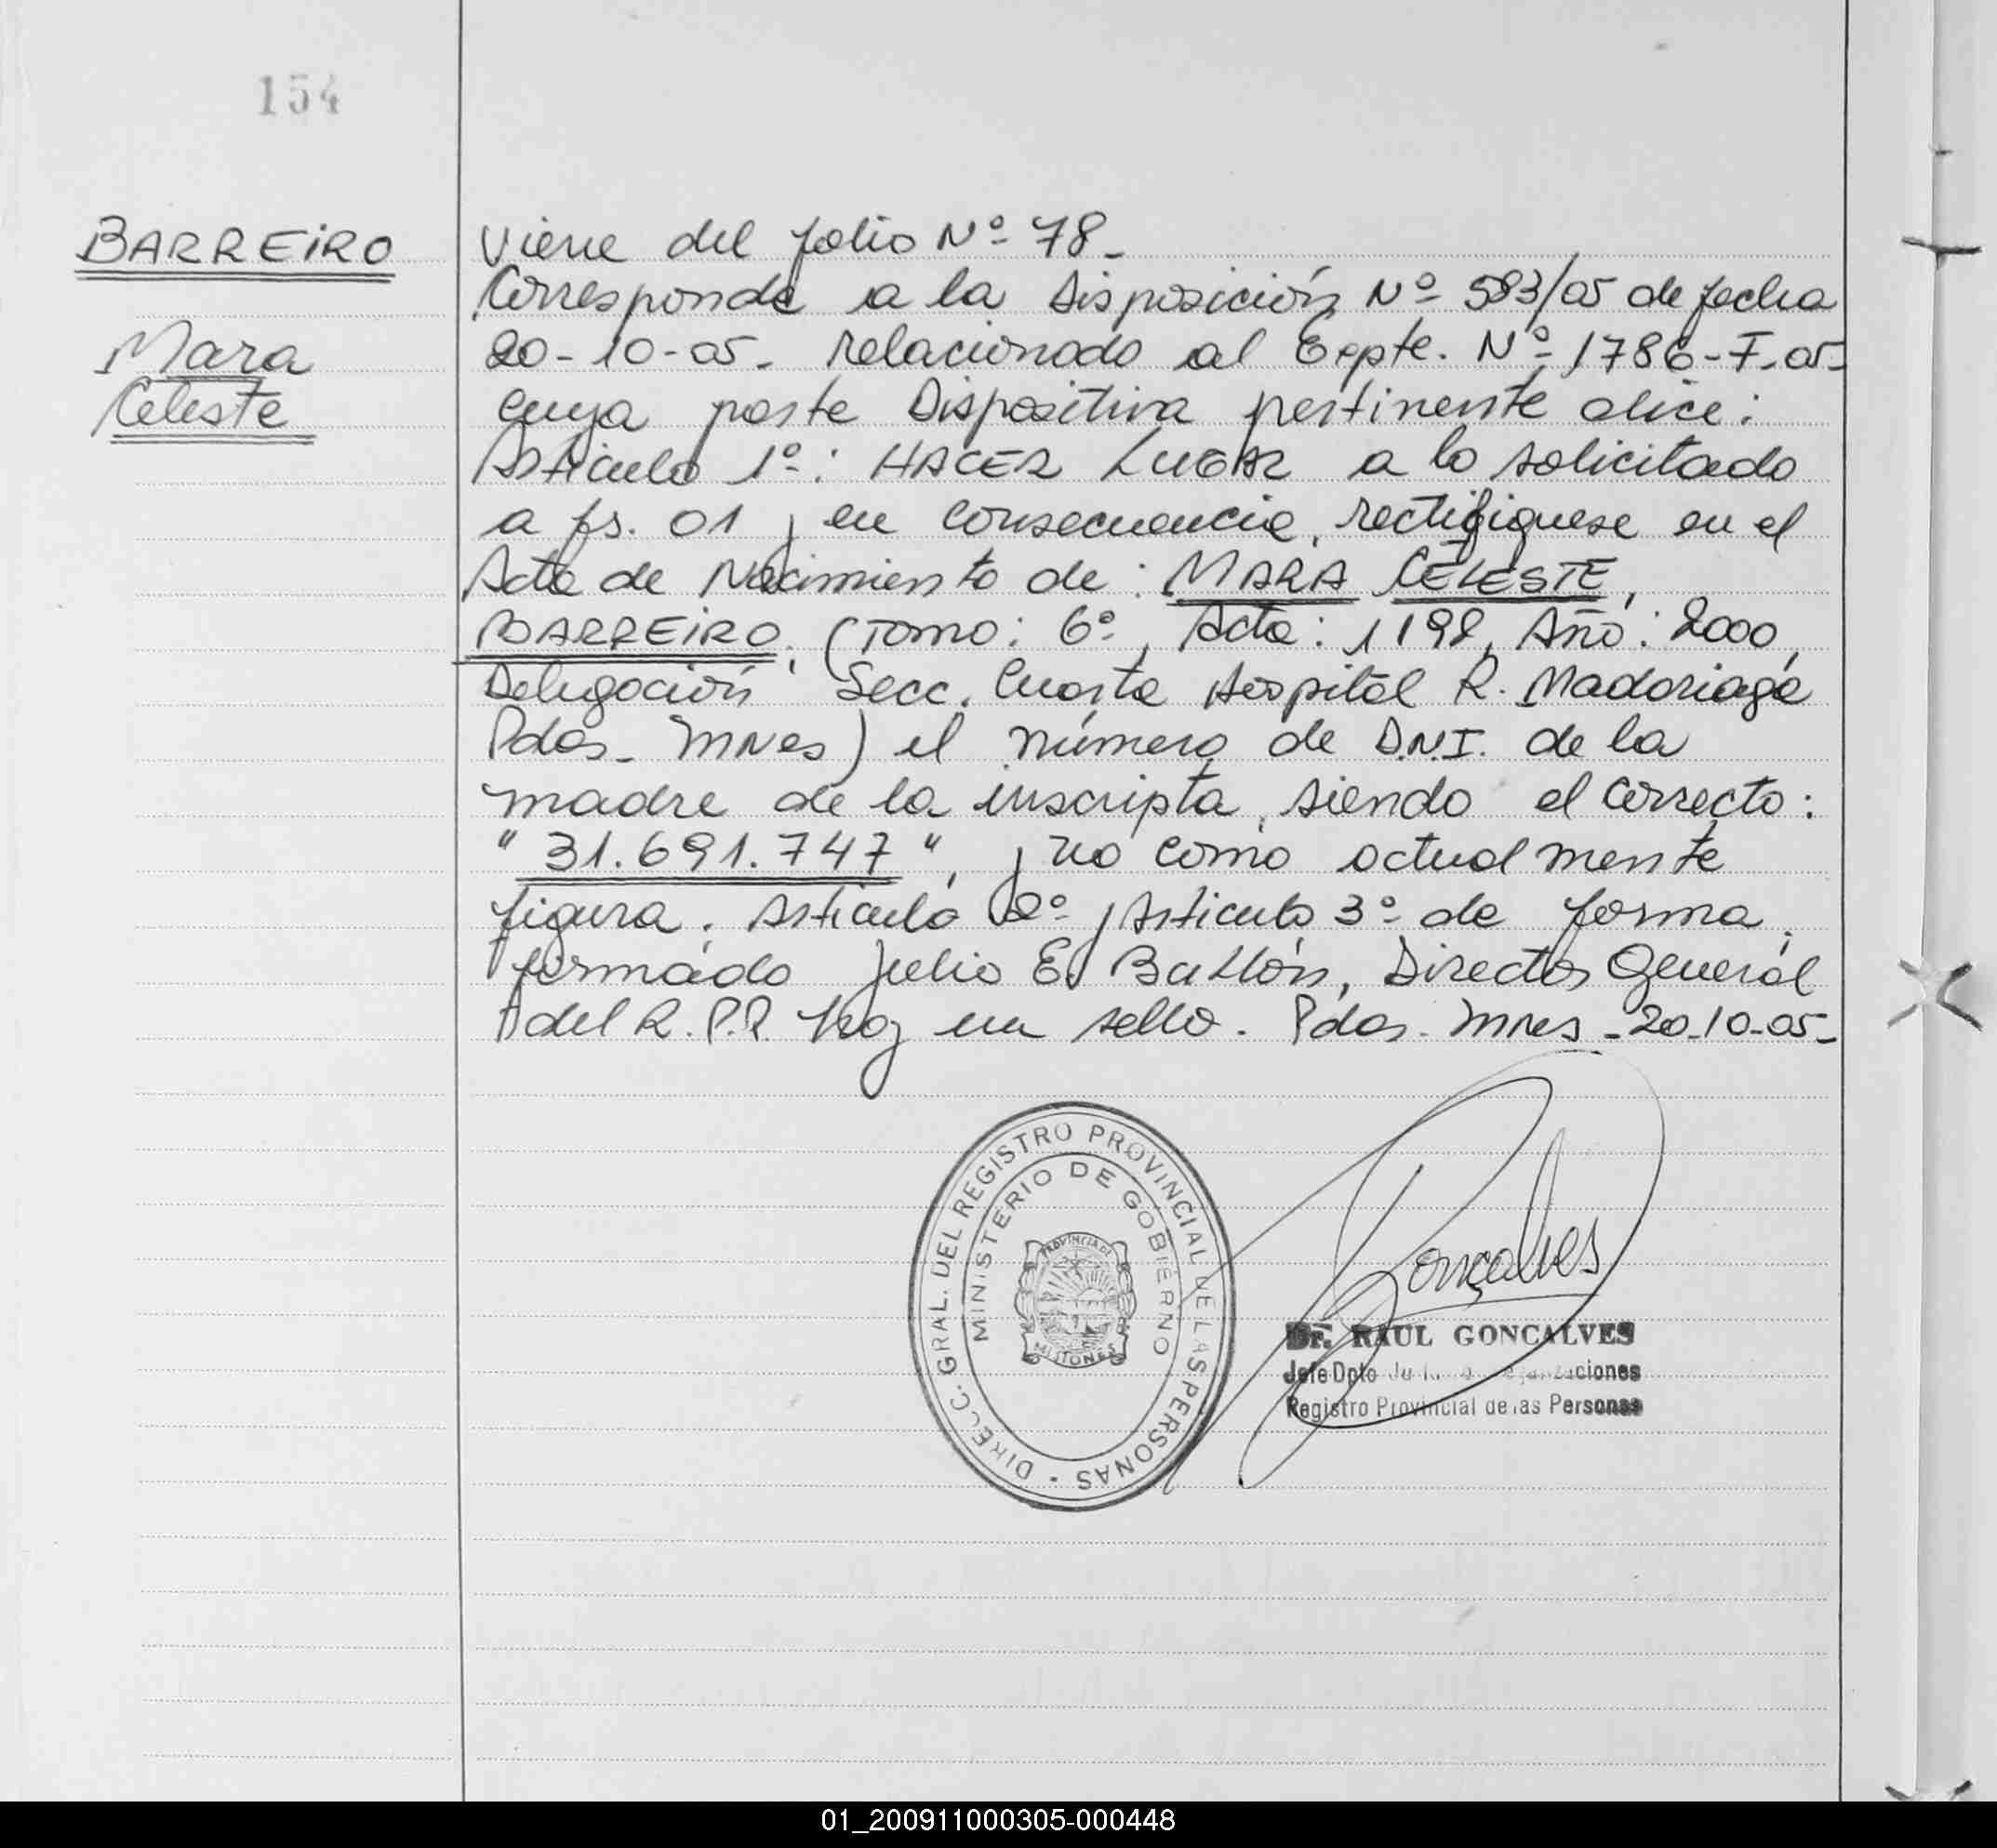 154
BARREIRO
Mara
Celeste
Viene del folio Nº 78-
Corresponde a la Disposición Nº 583/05 de fecha
20-10-05- relacionado al Expte. Nº 1786-F-05-
cuya parte Dispositiva pertinente dice:
Artículo 1º: HACER LUGAR a lo solicitado
a fs. 01 y en consecuencia, rectifiquese en el
Acta de Nacimiento de: MARA CELESTE,
BARREIRO, (Tomo: 6º, Acta: 1198, Año: 2000,
Delegación Secc. Cuarta Hospital R. Madariaga
Pdas- Mnes) el número de D.N.I. de la
madre de la inscripta, siendo el correcto:
"31.691.747", y no como actualmente
figura. Artículo 2º y Artículo 3º de forma,
firmado Julio E. Ballón, Director General
del R.P.P. Hay un sello. Pdas- Mnes -20-10-05-
DIRECC. GRAL. DEL REGISTRO PROVINCIAL DE LAS PERSONAS
MINISTERIO DE GOBIERNO
PROVINCIA DE
MISIONES
Gonçalves
Dr. RAUL GONCALVES
Jefe Dpto
Registro Provincial de las Personas
01_200911000305-000448